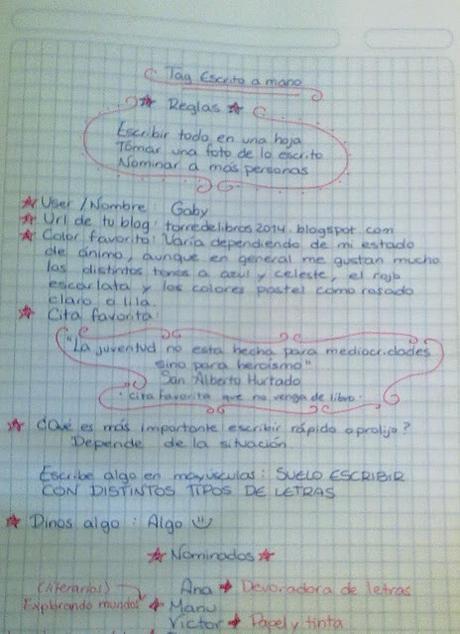 Tag Escrito a mano
Reglas
Escribir todo en una hoja
Tomar una foto de lo escrito
Nominar a más personas
User / Nombre: Gaby
Url de tu blog: torredelibros2014.blogspot.com
Color favorito: Varía dependiendo de mi estado
de ánimo, aunque en general me gustan mucho
los distintos tonos a azul y celeste, el rojo
escarlata y los colores pastel como rosado
claro o lila.
Cita favorita:
"La juventud no esta hecha para mediocridades
sino para heroismo"
San Alberto Hurtado
· cita favorita que no venga de libro ·
¿Qué es más importante escribir rápido o prolijo?
Depende de la situación
Escribe algo en mayúsculas: SUELO ESCRIBIR
CON DISTINTOS TIPOS DE LETRAS
Dinos algo: Algo
Nominados
Ana → Devoradora de letras
(literarios)
Explorando mundos ← Manu
Victor → Papel y tinta